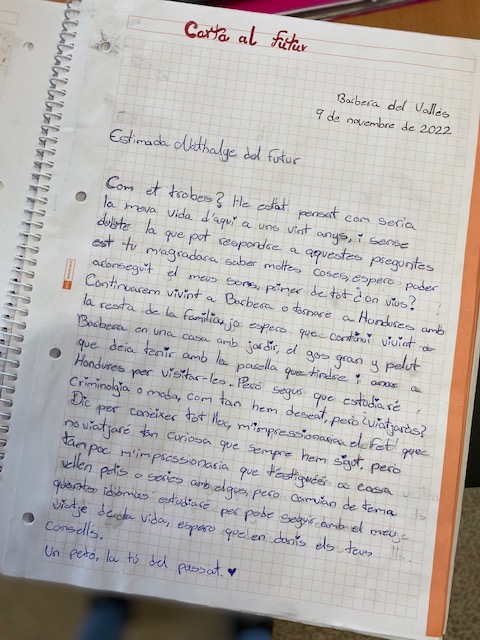 Carta al futur
Barbera del Vallés
9 de novembre de 2022
Estimada Nathalye del futur
Com et trobes? He estat pensat com seria
la meva vida d'aquí a uns vint anys, i sense
dubte la que pot respondre a aquestes preguntes
est tu m'agradara saber moltes coses, espero poder
aconseguit el meus somis, primer de tot d'on vius?
Continuarem vivint a Barbera o tornaré a Hondures amb
la resta de la familia, jo espero que continui vivint a
Barbera en una casa amb jardir, el gos gran y pelut
que deia tenir amb la parella que tindre i anar a
Hondures per visitar-les. Però segur que estudiaré
Criminolgia o moda, com tan hem deseat, però ¿viatjaràs?
Dic per coneixer tot lloc, m'impressionaria el fet que
no viatjaré tan curiosa que sempre hem sigut, però
tampoc m'impressionaria que t'estigues a casa
vellen pelis o series amb edges, però camvian de tema
quantes idiomas estudiaré per pode seguir amb el meu
viatje de la vida, espero que en donis els teus
consells.
Un petó, la tú del passat. ♥